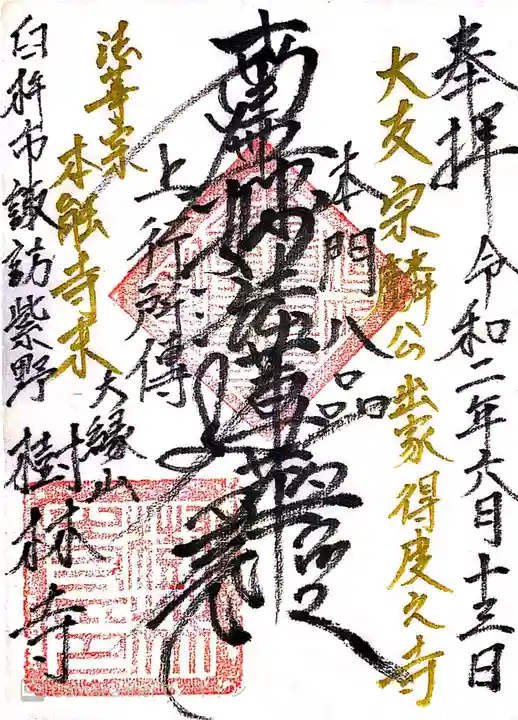 奉拝 令和二年六月十三日
大友宗麟公出家得度之寺
本門八品
南無妙法蓮華経
上行所傳
法華宗
本能寺末
大縁山
樹林寺
臼杵市諏訪紫野